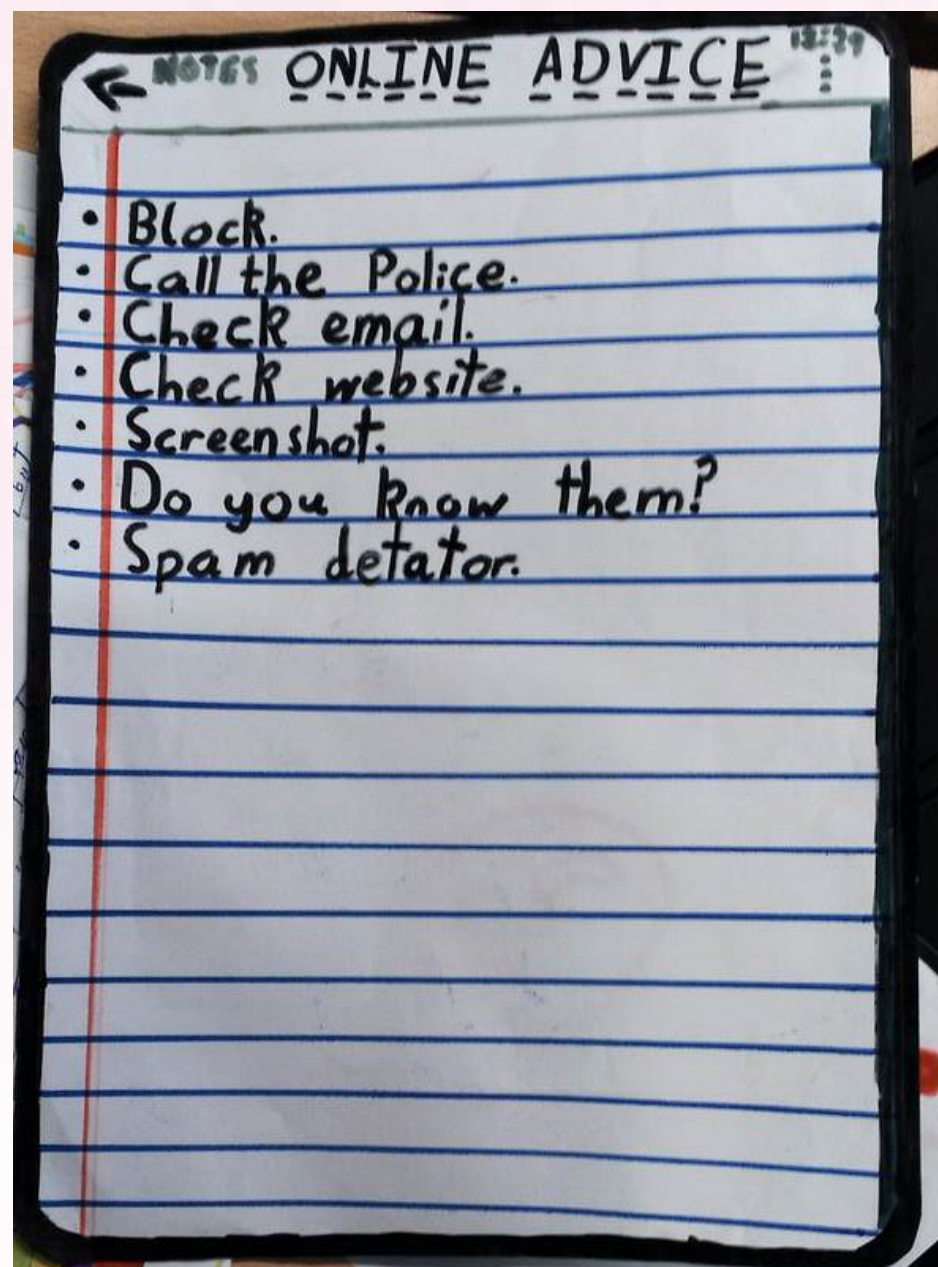 NOTES ONLINE ADVICE 12:29
• Block.
• Call the Police.
• Check email.
• Check website.
• Screenshot.
• Do you know them?
• Spam detator.